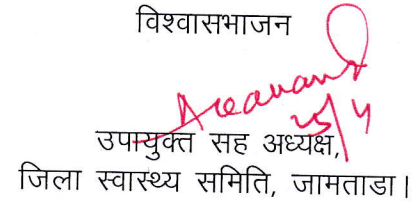 विश्वासभाजन
25/4
उपायुक्त सह अध्यक्ष,
जिला स्वास्थ्य समिति, जामताडा।